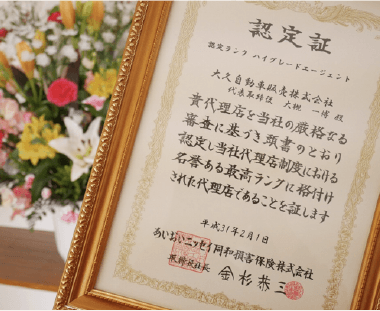 認定証
認定ランク ハイグレードエージェント
大久自動車販売株式会社
代表取締役 大槻 一博 殿
貴代理店を当社の厳格なる
審査に基づき頭書のとおり
認定し当社代理店制度における
名誉ある最高ランクに格付け
された代理店であることを証します
平成31年2月1日
あいおいニッセイ同和損害保険株式会社
取締役社長 金杉恭三